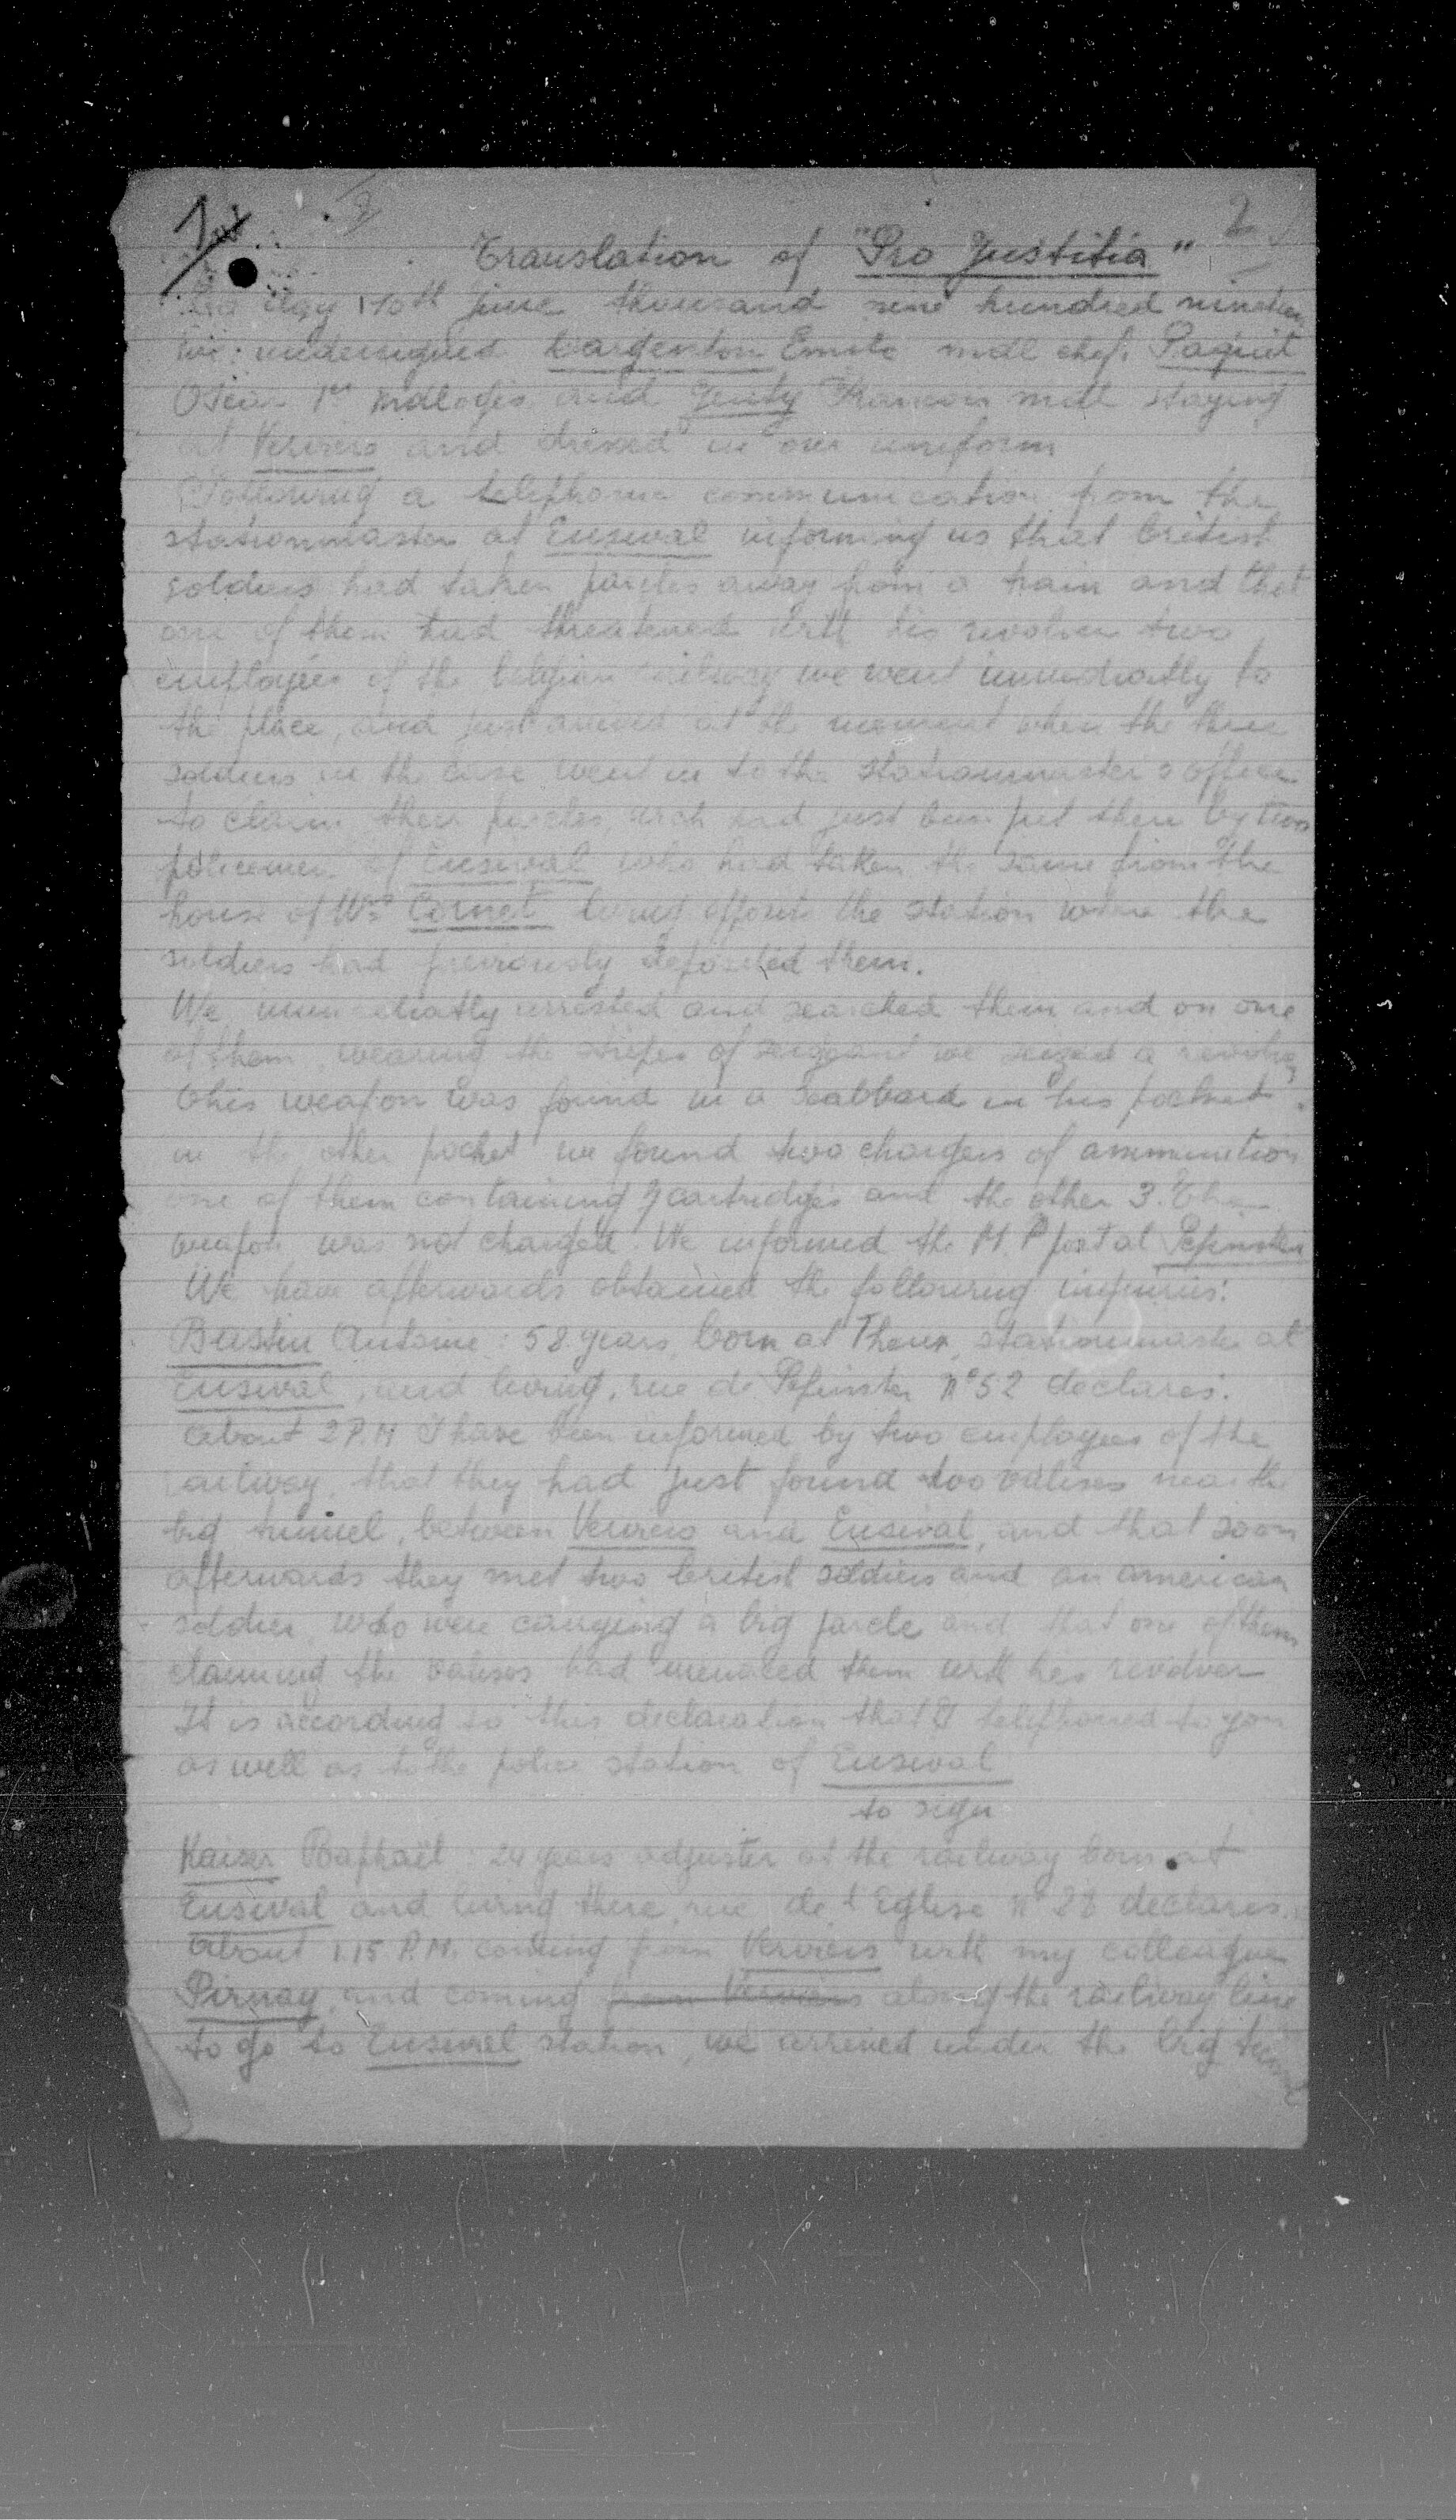 2
Translation of "Pro Justitia"
day 10th June thousand nine hundred nineteen
we undersigned Dargenton Emile mdll chef, Paquit
Oscar 1er mdlogis and Genty Francois mdll staying
at Verviers and dressed in our uniform
Following a telephonic communication from the
stationmaster at Ensival informing us that british
soldiers had taken parcles away from a train and that
one of them had threatened with his revolver two
employées of the belgian railway we went immediatly to
the place, and just arrived at the moment when the three
soldiers in the case went in to the stationmaster's office
to claim their parcles wich had just been put there by two
policemen of Ensival who had taken the same from the
house of Cornet living opposite the station where the
soldiers had previously deposited them.
We immediatly arrested and searched them and on one
of them, wearing the stripes of sergeant we seized a revolver
this weapon was found in a scabbard in his pocket.
in the other pocket we found two chargers of ammunition
one of them containing 7 cartridges and the other 3. The
weapon was not charged. We informed the M.P post at Pepinster
We have afterwards obtained the following inquiries:
Bastin Antoine: 58 years, born at Theux, stationmaster at
Ensival, and living, rue de Pepinster N°52 declares:
about 2 P.M I have been informed by two employees of the
railway, that they had just found two valises near the
big tunnel, between Verviers and Ensival, and that soon
afterwards they met two british soldiers and an american
soldier, who were carrying a big parcle and that one of them
claiming the valises had menaced them with his revolver
It is according to this declaration that I telephoned to you
as well as to the police station of Ensival
to sign
Kaiser Raphaël 24 years adjuster at the railway born at
Ensival and living there, rue de l'Eglise N° 28 declares.
about 1.15 P.M. coming from Verviers with my colleague
Pirnay, and coming from Verviers along the railway line
to go to Ensival station, we arrived under the big tunnel